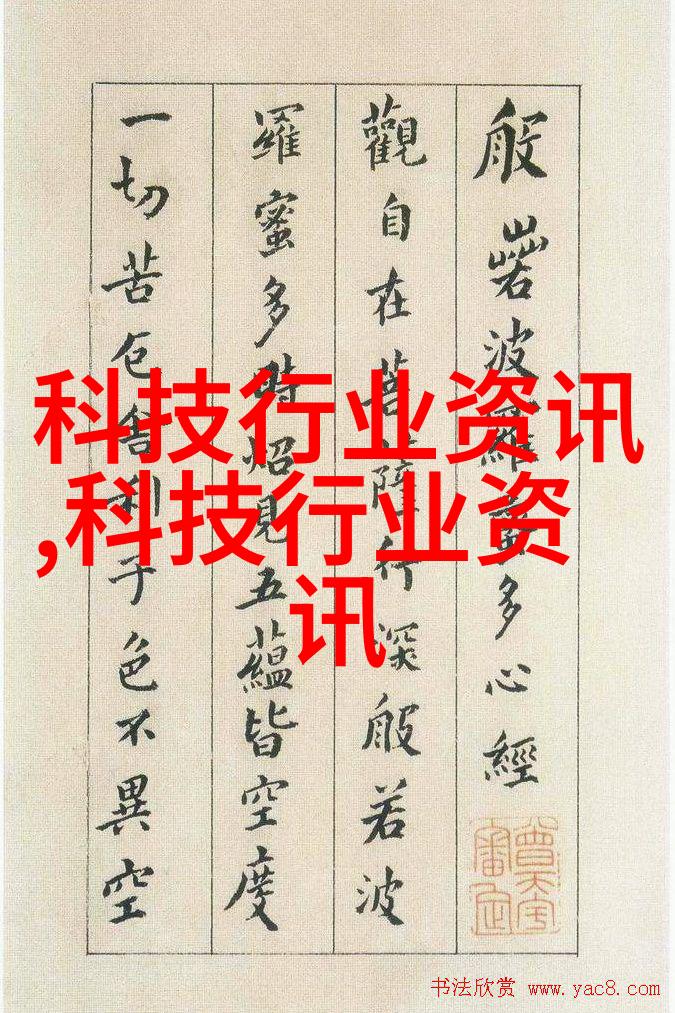 般若波羅蜜多心經
觀自在菩薩行深般若波
羅蜜多時炤見五蘊皆空度
一切苦厄舍利子色不異空
科技行业资讯
,科技行业资
讯
书法欣赏 www.yac8.com